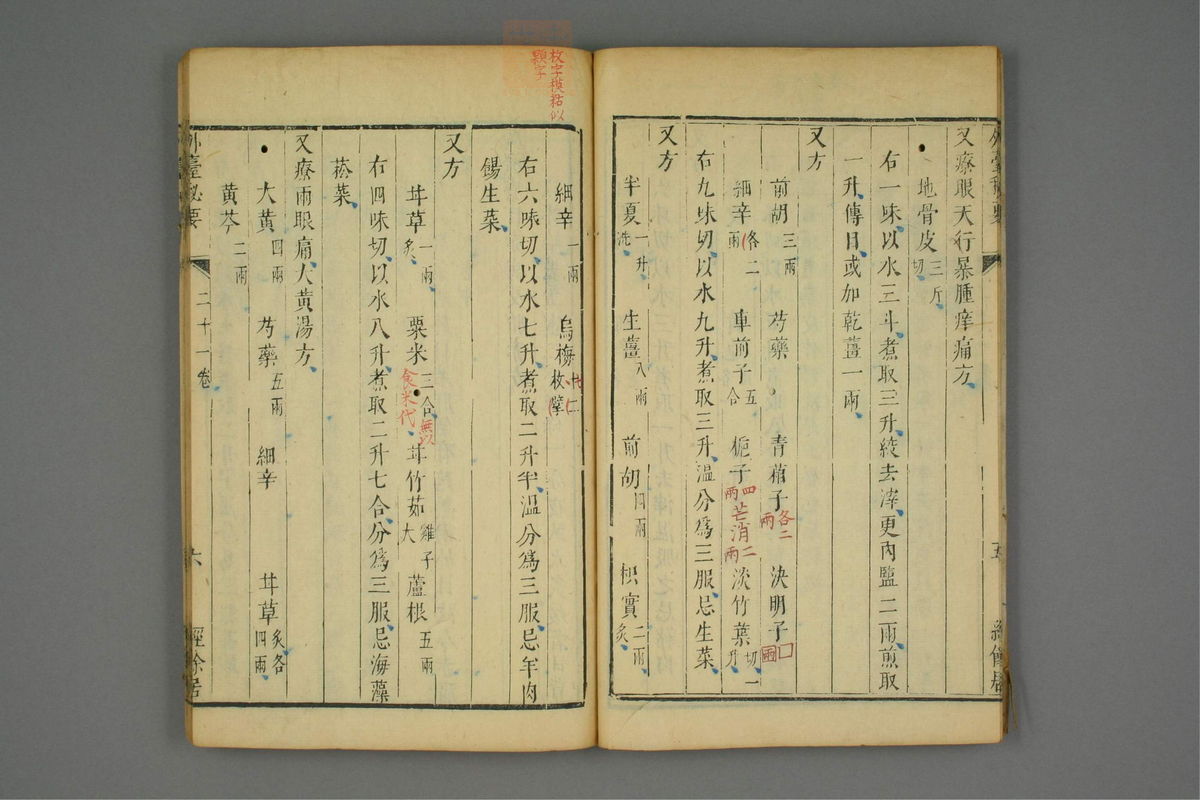 又療眼天行暴腫痒痛方
地骨皮三斤切
右一味以水三斗煮取三升絞去滓更內鹽二兩煎取
一升傅目或加乾薑一兩
又方
前胡三兩 芍藥 青葙子各二兩 決明子
細辛各二兩 車前子五合 梔子四兩芒消二兩 淡竹葉切一升
右九味切以水九升煮取三升溫分爲三服忌生菜
又方
半夏一升洗 生薑八兩 前胡四兩 枳實二兩炙
細辛一兩 烏梅十二枚擘
右六味切以水七升煮取二升半溫分爲三服忌羊肉
餳生菜
又方
甘草一兩炙 粟米三合無以食米代 甘竹茹雞子大 蘆根五兩
右四味切以水八升煮取二升七合分爲三服忌海藻
菘菜
又療兩眼痛大黃湯方
大黃四兩 芍藥五兩 細辛 甘草炙各四兩
黃芩二兩
外臺秘要 二十一卷 六 經餘居
枚字模粘似
顆字